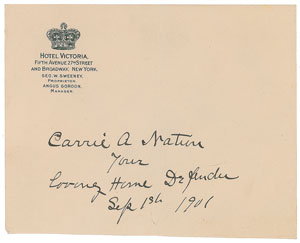 HOTEL VICTORIA,
FIFTH AVENUE 27TH STREET
AND BROADWAY, NEW YORK.
GEO. W. SWEENEY,
PROPRIETOR
ANGUS GORDON,
MANAGER.
Carrie A Nation
Your
Loving Home Defender
Sep 1st 1901